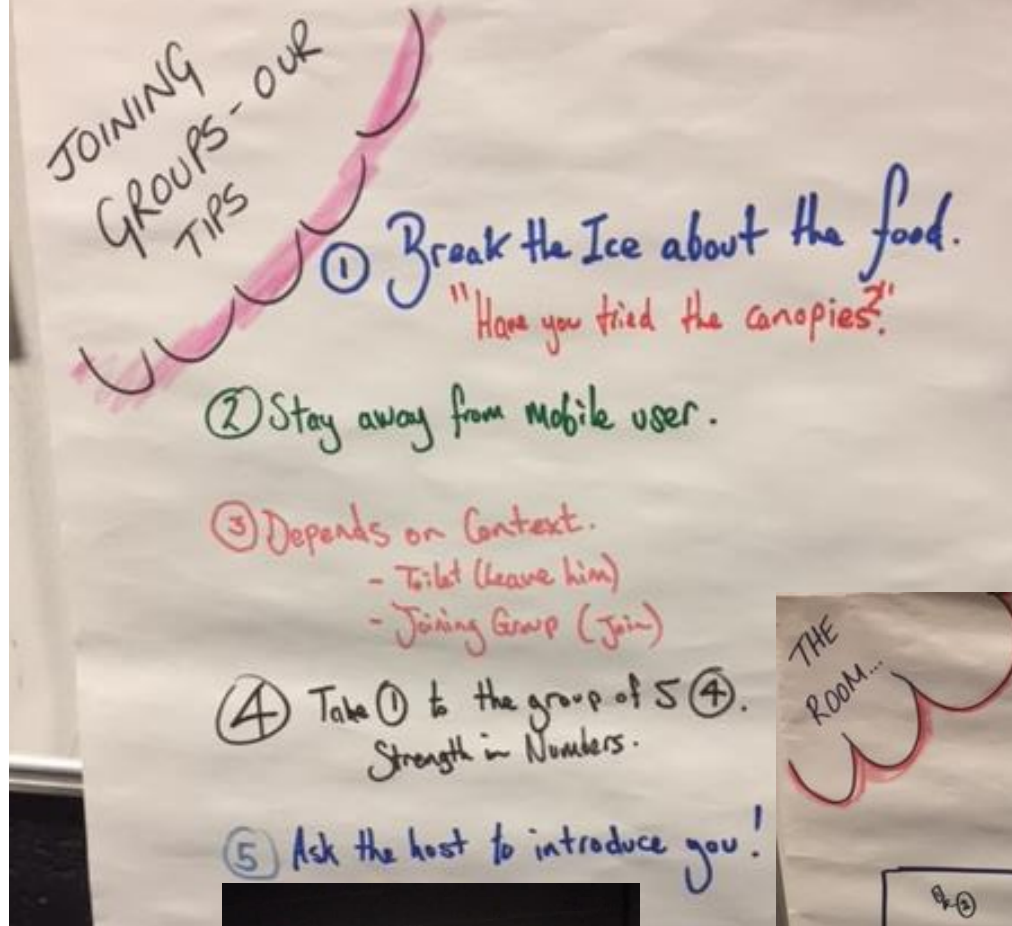 JOINING
GROUPS - OUR
TIPS
① Break the Ice about the food.
"Have you tried the canopies?"
② Stay away from mobile user.
③ Depends on Context.
- Toilet (Leave him)
- Joining Group (Join)
④ Take ① to the group of 5 ④.
Strength in Numbers.
⑤ Ask the host to introduce you!
THE
ROOM...
②